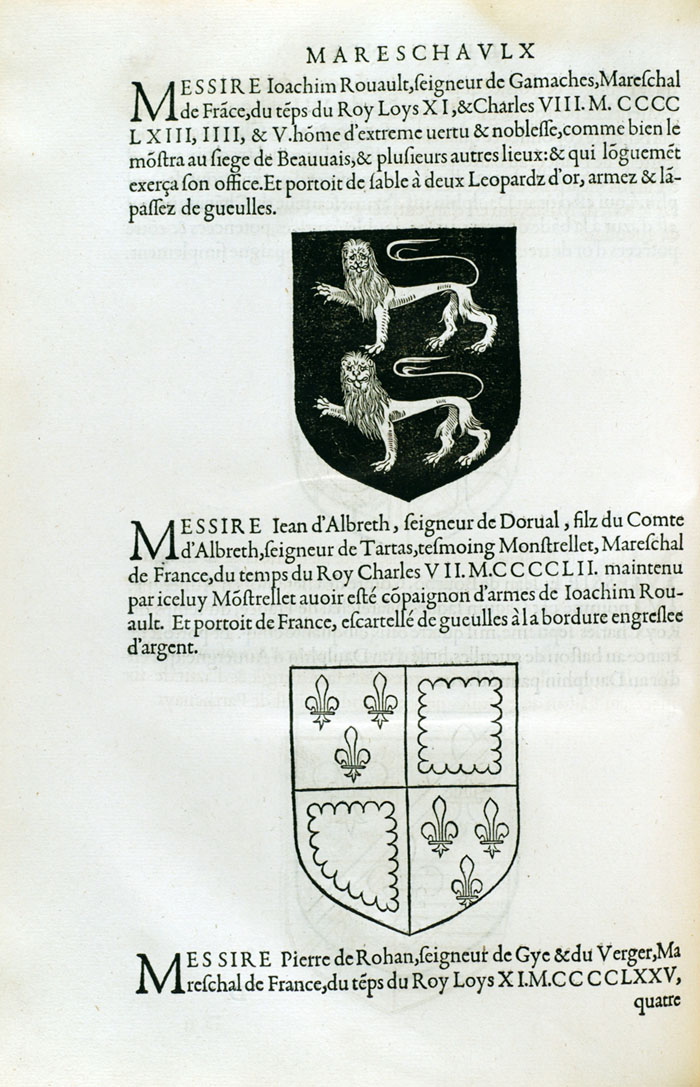 MARESCHAVLX
MESSIRE Ioachim Rouault,ſeigneur de Gamaches,Mareſchal
de Frãce,du tẽps du Roy Loys XI,&Charles VIII.M. CCCC
LXIII, IIII, & V.hõme d'extreme uertu & nobleſſe,comme bien le
mõſtra au ſiege de Beauuais,& pluſieurs autres lieux:& qui lõguemẽt
exerça ſon office.Et portoit de ſable à deux Leopardz d'or, armez & lã-
paſſez de gueulles.
MESSIRE Iean d'Albreth, ſeigneur de Dorual, filz du Comte
d'Albreth,ſeigneur de Tartas,teſmoing Monſtrellet, Mareſchal
de France,du temps du Roy Charles VII.M.CCCCLII. maintenu
par iceluy Mõſtrellet auoir eſté cõpaignon d'armes de Ioachim Rou-
ault. Et portoit de France, eſcartellé de gueulles à la bordure engreſlee
d'argent.
MESSIRE Pierre de Rohan,ſeigneur de Gye &du Verger,Ma
reſchal de France,du tẽps du Roy Loys XI.M.CCCCLXXV,
quatre